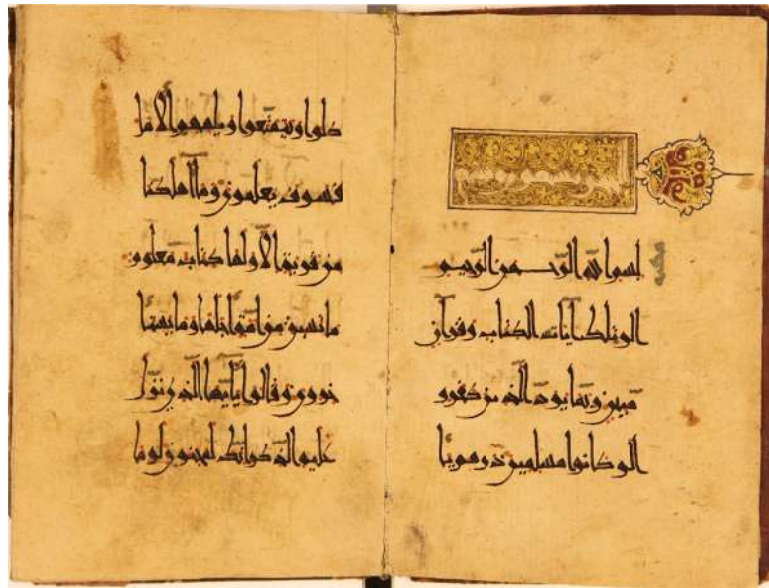 بسم الله الرحمن الرحيم
الر تلك آيات الكتاب وقرآن
مبين ربما يود الذين كفرو
ا لو كانوا مسلمين ذرهم يأ
كلوا ويتمتعوا ويلههم الأمل
فسوف يعلمون وما أهلكنا
من قرية إلا ولها كتاب معلوم
ما تسبق من أمة أجلها وما يستأ
خرون وقالوا يأيها الذي نزل
عليه الذكر إنك لمجنون لو ما